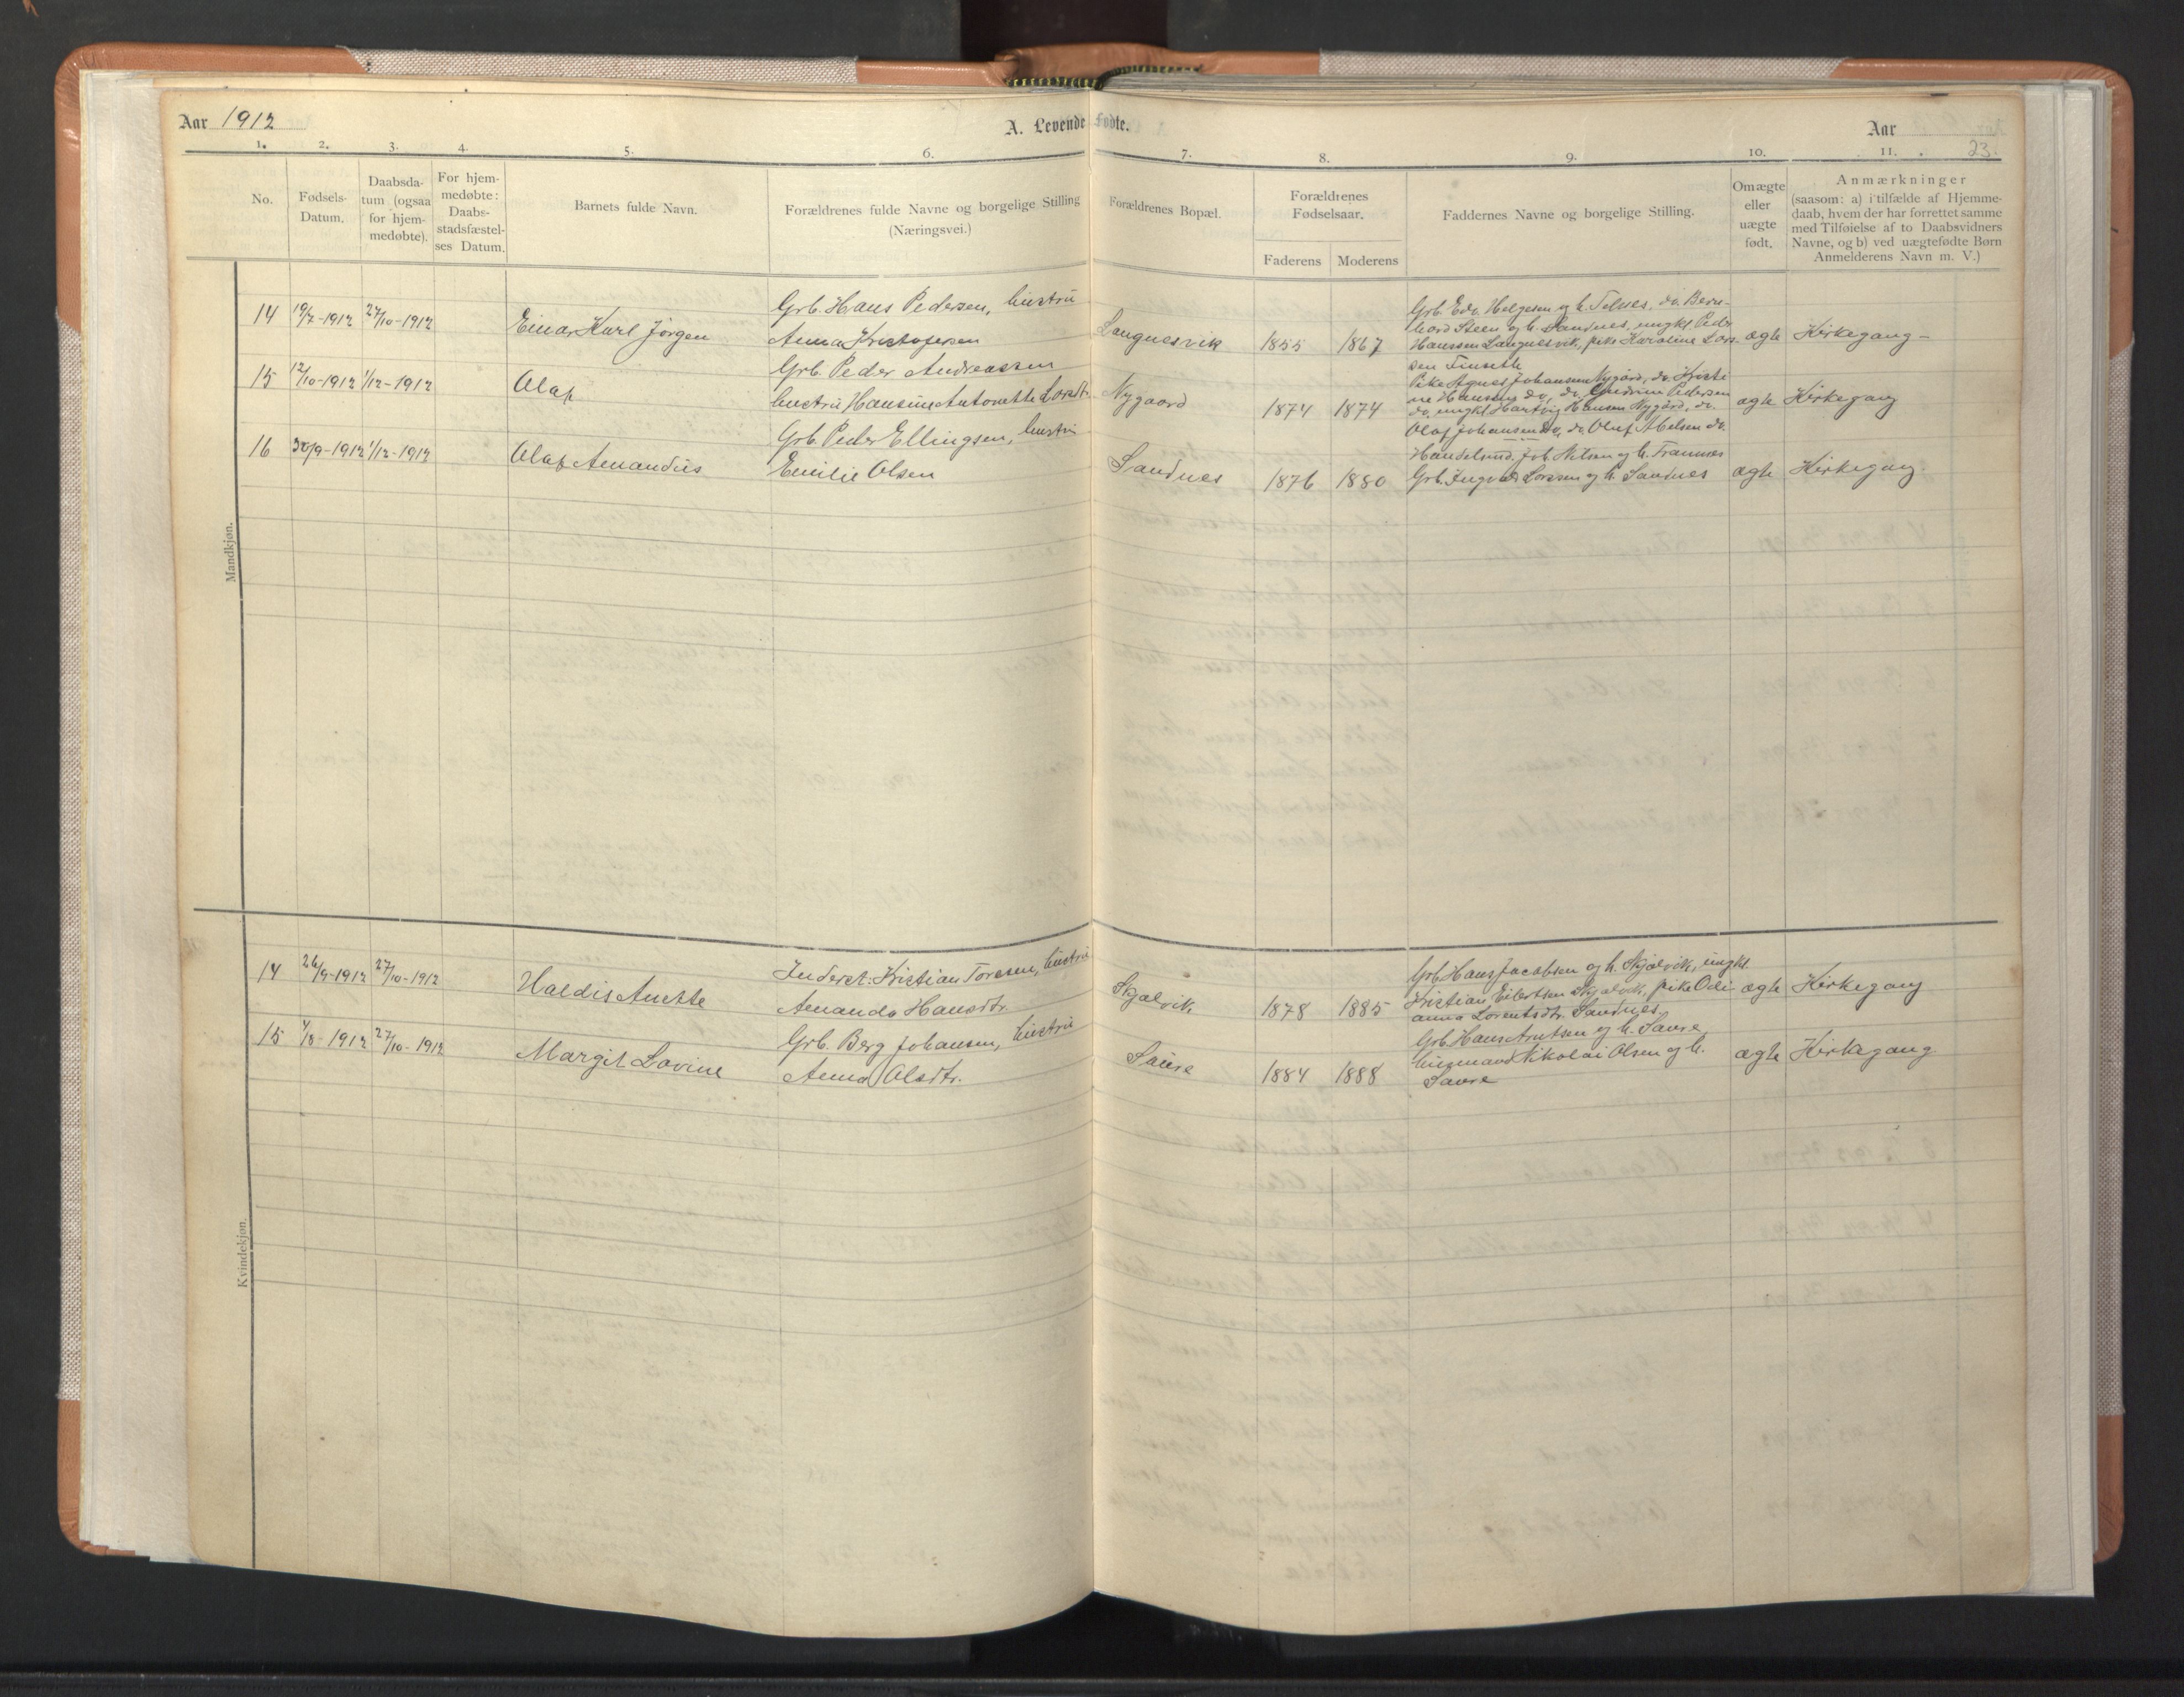 Aar 1912
A. Levende Fødte.
Aar
23.
1. 2. 3. 4. 5. 6. 7. 8. 9. 10. 11.
No.
Fødsels-
Datum.
Daabsda-
tum (ogsaa
for hjem-
medøbte).
For hjem-
medøbte:
Daabs-
stadsfæstel-
ses Datum.
Barnets fulde Navn.
Forældrenes fulde Navne og borgelige Stilling
(Næringsvei.)
Forældrenes Bopæl.
Forældrenes
Fødselsaar.
Faderens Moderens
Faddernes Navne og borgelige Stilling.
Om ægte
eller
uægte
født.
Anmærkninger
(saasom: a) i tilfælde af Hjemme-
daab, hvem der har forrettet samme
med Tilføielse af to Daabsvidners
Navne, og b) ved uægtefødte Børn
Anmelderens Navn m. V.)
Mandkjøn.
14 19/7-1912 27/10-1912
Einar Karl Jørgen
Grb. Hans Pedersen, hustru
Anna Kristofersen
Langnesvik
1855 1867
Grb. Edv. Helgesen og h. Telnes, do. Bern-
hard Steen og h. Sandnes, ungkl. Peder
Hanssen Langnesvik, pike Karoline Lars-
sen Finseth
ægte
Kirkegang-
15 12/10-1912 1/12-1912
Olaf
Grb. Peder Andreassen
hustru Hansine Antonette Larsdtr.
Nygaard
1874 1874
Pike Agnes Johansen Nygård, do. Kristi
ne Hansen do, do. Gudrun Pedersen
do, ungkl. Hartvig Hansen Nygård, do.
Olaf Johansen do, do. Oluf Abelsen do.
ægte
Kirkegang
16 30/9-1912 1/12-1912
Olaf Amandus
Grb. Peder Ellingsen, hustru
Emilie Olsen
Sandnes
1876 1880
Handelsmd. Joh. Nilsen og h. Tranmes
Grb. Ingvald Larssen og h. Sandnes
ægte
Kirkegang
Kvindekjøn.
14 26/9-1912 27/10-1912
Haldis Anette
Inderst. Kristian Toresen, hustru
Amanda Hansdtr.
Skjelvik
1878 1885
Grb. Hans Jacobsen og h. Skjelvik, ungkl
Kristian Eilertsen Skjelvik, pike Odi-
anna Lorentsdtr. Sandnes.
ægte
Kirkegang
15 1/8-1912 27/10-1912
Margit Lovine
Grb. Berg Johansen, hustru
Anna Olsdtr.
Saure
1884 1888
Grb. Hans Arntsen og h. Saure,
husmand Nikolai Olsen og h.
Saure
ægte
Kirkegang